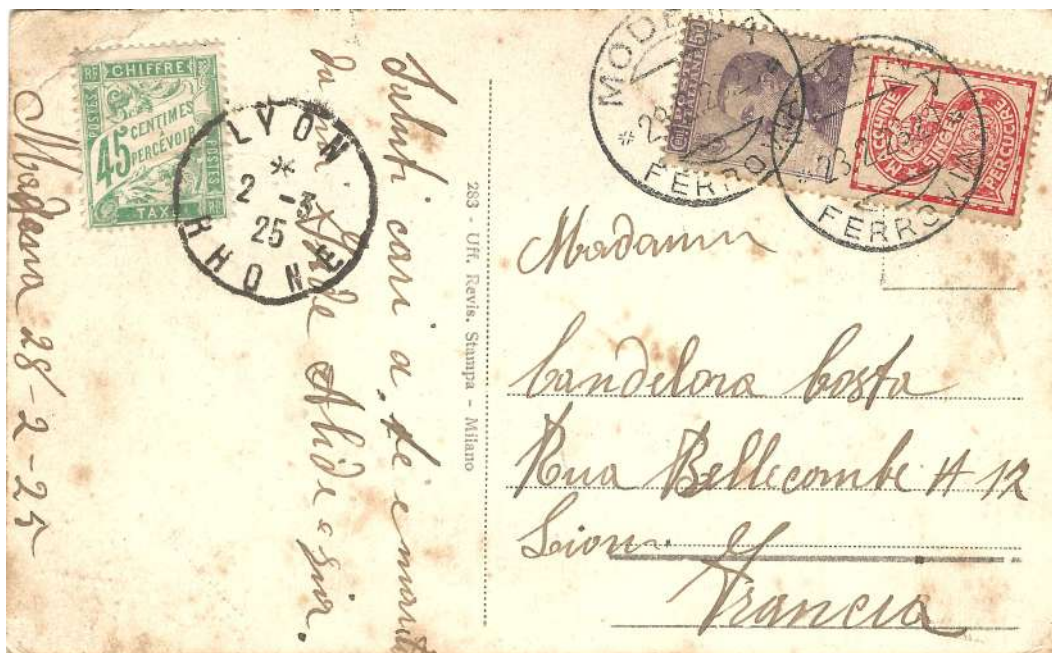 CHIFFRE
POSTES
45 CENTIMES
A PERCEVOIR
POSTES
TAXE
LYON
2 - 3
25
RHONE
Modena 28-2-25
Saluti cari a te e marito
da noi
283 - Uff. Revis. Stampa - Milano
MODENA
28
FERROVIA
MODENA
28 2 25
FERROVIA
POSTE ITALIANE
50
MACCHINE
SINGER
PER CUCIRE
Madama
Candelora Costa
Rua Bellecombe H 12
Lion
Francia